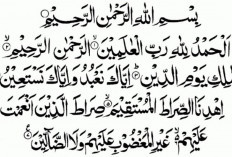 بِسْمِ اللهِ الرَّحْمٰنِ الرَّحِيْمِ
اَلْحَمْدُ لِلّٰهِ رَبِّ الْعٰلَمِيْنَ ۙ الرَّحْمٰنِ الرَّحِيْمِ ۙ
مٰلِكِ يَوْمِ الدِّيْنِ ۗ اِيَّاكَ نَعْبُدُ وَاِيَّاكَ نَسْتَعِيْنُ ۗ
اِهْدِنَا الصِّرَاطَ الْمُسْتَقِيْمَ ۙ صِرَاطَ الَّذِيْنَ اَنْعَمْتَ
عَلَيْهِمْ ەۙ غَيْرِ الْمَغْضُوْبِ عَلَيْهِمْ وَلَا الضَّاۤلِّيْنَ